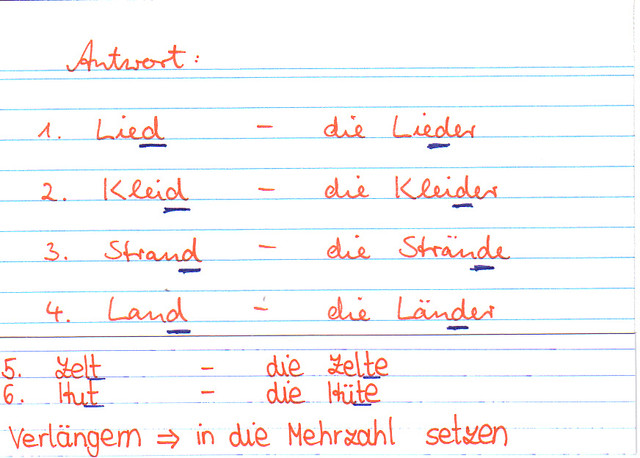 Antwort:
1. Lied - die Lieder
2. Kleid - die Kleider
3. Strand - die Strände
4. Land - die Länder
5. Zelt - die Zelte
6. Hut - die Hüte
Verlängern ⇒ in die Mehrzahl setzen